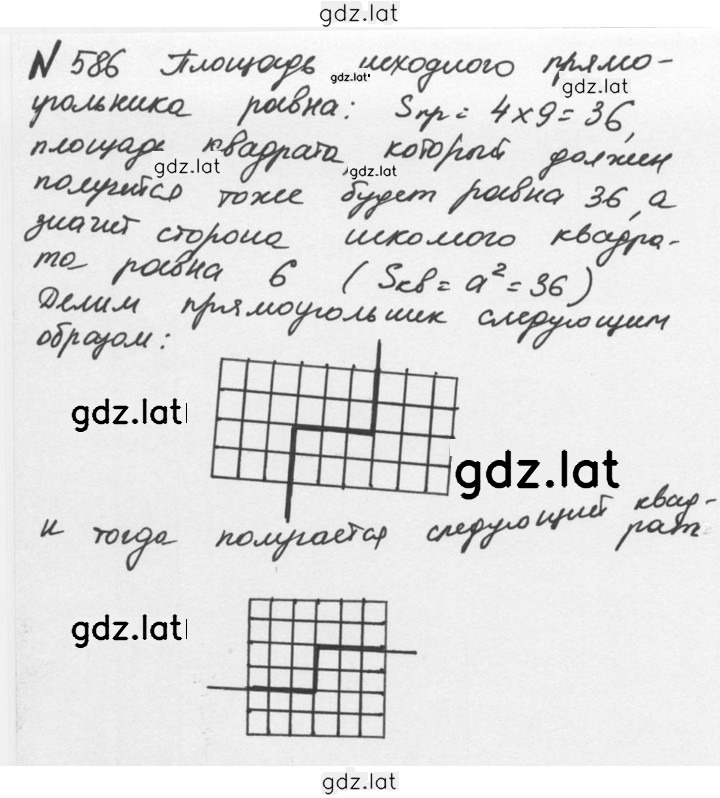 gdz.lat
№ 586 Площадь исходного прямо-
gdz.lat
gdz.lat
угольника равна: Sпр = 4 × 9 = 36,
площадь квадрата, который должен
gdz.lat
gdz.lat
получится тоже будет равна 36, а
значит сторона искомого квадра-
та равна 6 (Sкв = a² = 36)
Делим прямоугольник следующим
образом:
gdz.lat
gdz.lat
и тогда получается следующий квад-
рат
gdz.lat
gdz.lat